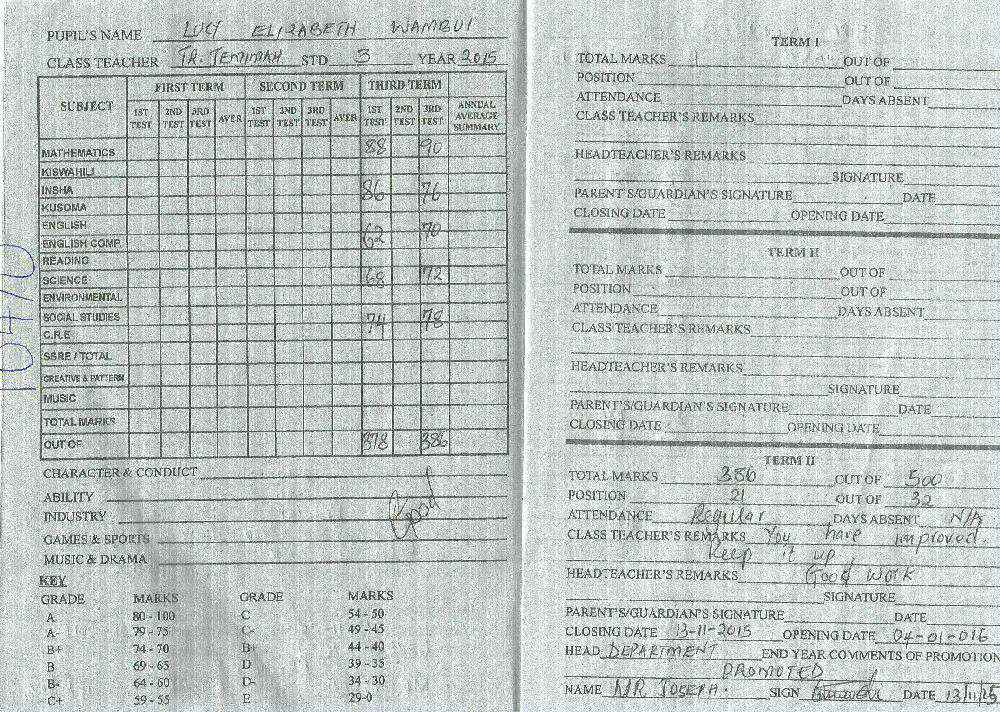 PUPIL'S NAME LUCY ELIZABETH WAMBUI
CLASS TEACHER TR. JEMIMAH STD 3 YEAR 2015
SUBJECT FIRST TERM SECOND TERM THIRD TERM ANNUAL AVERAGE SUMMARY
1ST TEST 2ND TEST 3RD TEST AVER 1ST TEST 2ND TEST 3RD TEST AVER 1ST TEST 2ND TEST 3RD TEST
MATHEMATICS 88 90
KISWAHILI
INSHA 86 76
KUSOMA
ENGLISH
ENGLISH COMP. 62 70
READING
SCIENCE 68 72
ENVIRONMENTAL
SOCIAL STUDIES 74 78
C.R.E
SSRE / TOTAL
CREATIVE & PATTERN
MUSIC
TOTAL MARKS
OUT OF 378 386
CHARACTER & CONDUCT
ABILITY
INDUSTRY Good
GAMES & SPORTS
MUSIC & DRAMA
KEY
GRADE MARKS GRADE MARKS
A 80 - 100 C 54 - 50
A- 79 - 75 C- 49 - 45
B+ 74 - 70 44 - 40
B 69 - 65 D 39 - 35
B- 64 - 60 D- 34 - 30
C+ 59 - 55 E 29-0
TERM I
TOTAL MARKS OUT OF
POSITION OUT OF
ATTENDANCE DAYS ABSENT
CLASS TEACHER'S REMARKS
HEADTEACHER'S REMARKS
SIGNATURE
PARENT'S/GUARDIAN'S SIGNATURE DATE
CLOSING DATE OPENING DATE
TERM II
TOTAL MARKS OUT OF
POSITION OUT OF
ATTENDANCE DAYS ABSENT
CLASS TEACHER'S REMARKS
HEADTEACHER'S REMARKS
SIGNATURE
PARENT'S/GUARDIAN'S SIGNATURE DATE
CLOSING DATE OPENING DATE
TERM II
TOTAL MARKS 386 OUT OF 500
POSITION 21 OUT OF 32
ATTENDANCE Regular DAYS ABSENT N/A
CLASS TEACHER'S REMARKS You have improved.
Keep it up
HEADTEACHER'S REMARKS Good work
SIGNATURE
PARENT'S/GUARDIAN'S SIGNATURE DATE
CLOSING DATE 13-11-2015 OPENING DATE 04-01-016
HEAD DEPARTMENT END YEAR COMMENTS OF PROMOTION
PROMOTED
NAME MR JOSEPH. SIGN DATE 13/11/15